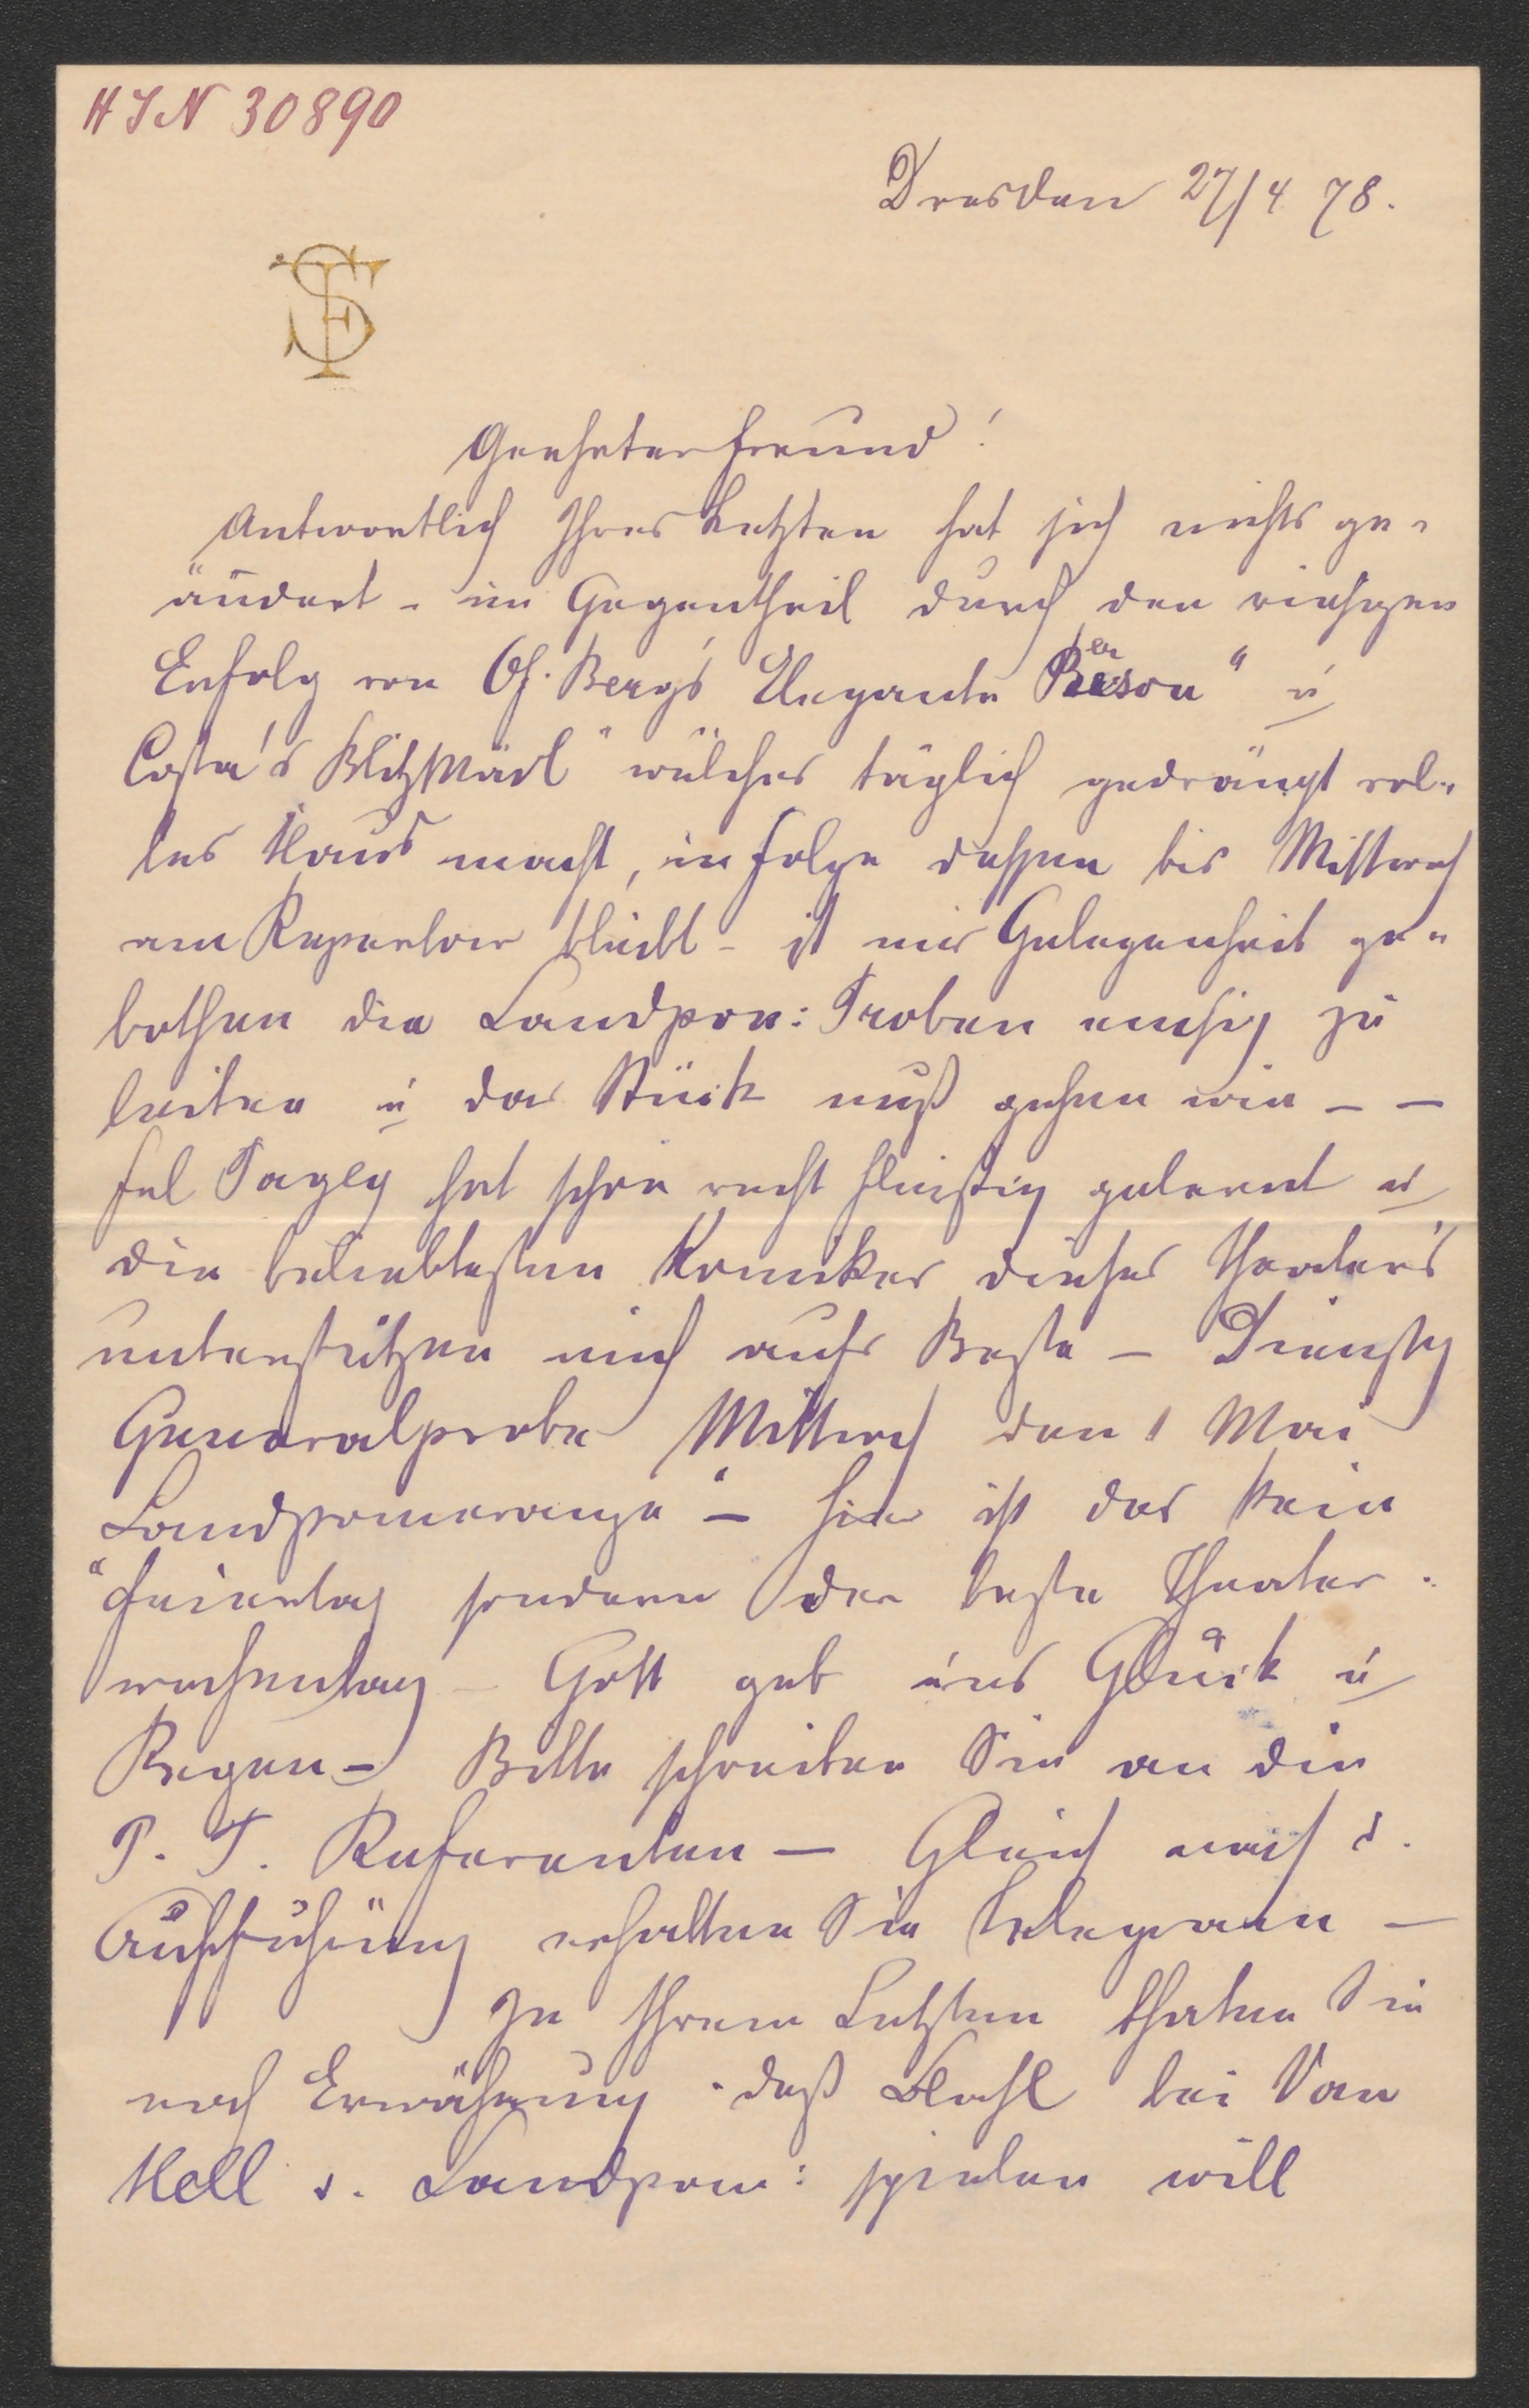 HIN 30890
Dresden 27/4 78.
Geehrter Freund!
Antwortlich Ihres Letzten hat sich nichts ge-
ändert - im Gegentheil durch den riesigen
Erfolg von O.F. Berg's Elegante Person" u
Costa's BlitzMädl" welches täglich gedrängt vol-
les Haus macht, in Folge dessen bis Mittwoch
am Repertoir bleibt - ist mir Gelegenheit ge-
bothen die Landpom: Proben emsig zu
leiten u das Stück muß gehen wie - -
Frl Pagay hat schon recht fleißig gelernt u
die beliebtesten Komiker dieses Theater's
unterstützen mich aufs Beste - Dienstg
Generalprobe Mittwoch den 1 Mai
Landpomeranze" - hier ist das kein
"Feiertag sondern der beste Theater-
wochentag - Gott geb uns Glück u
Regen - Bitte schreiben Sie an die
P. T. Referenten - Gleich nach d.
Aufführung erhalten Sie Telegram -
In Ihrem Letzten thaten Sie
noch Erwähnung - daß bei Van
Hell d. Landpom: spielen will